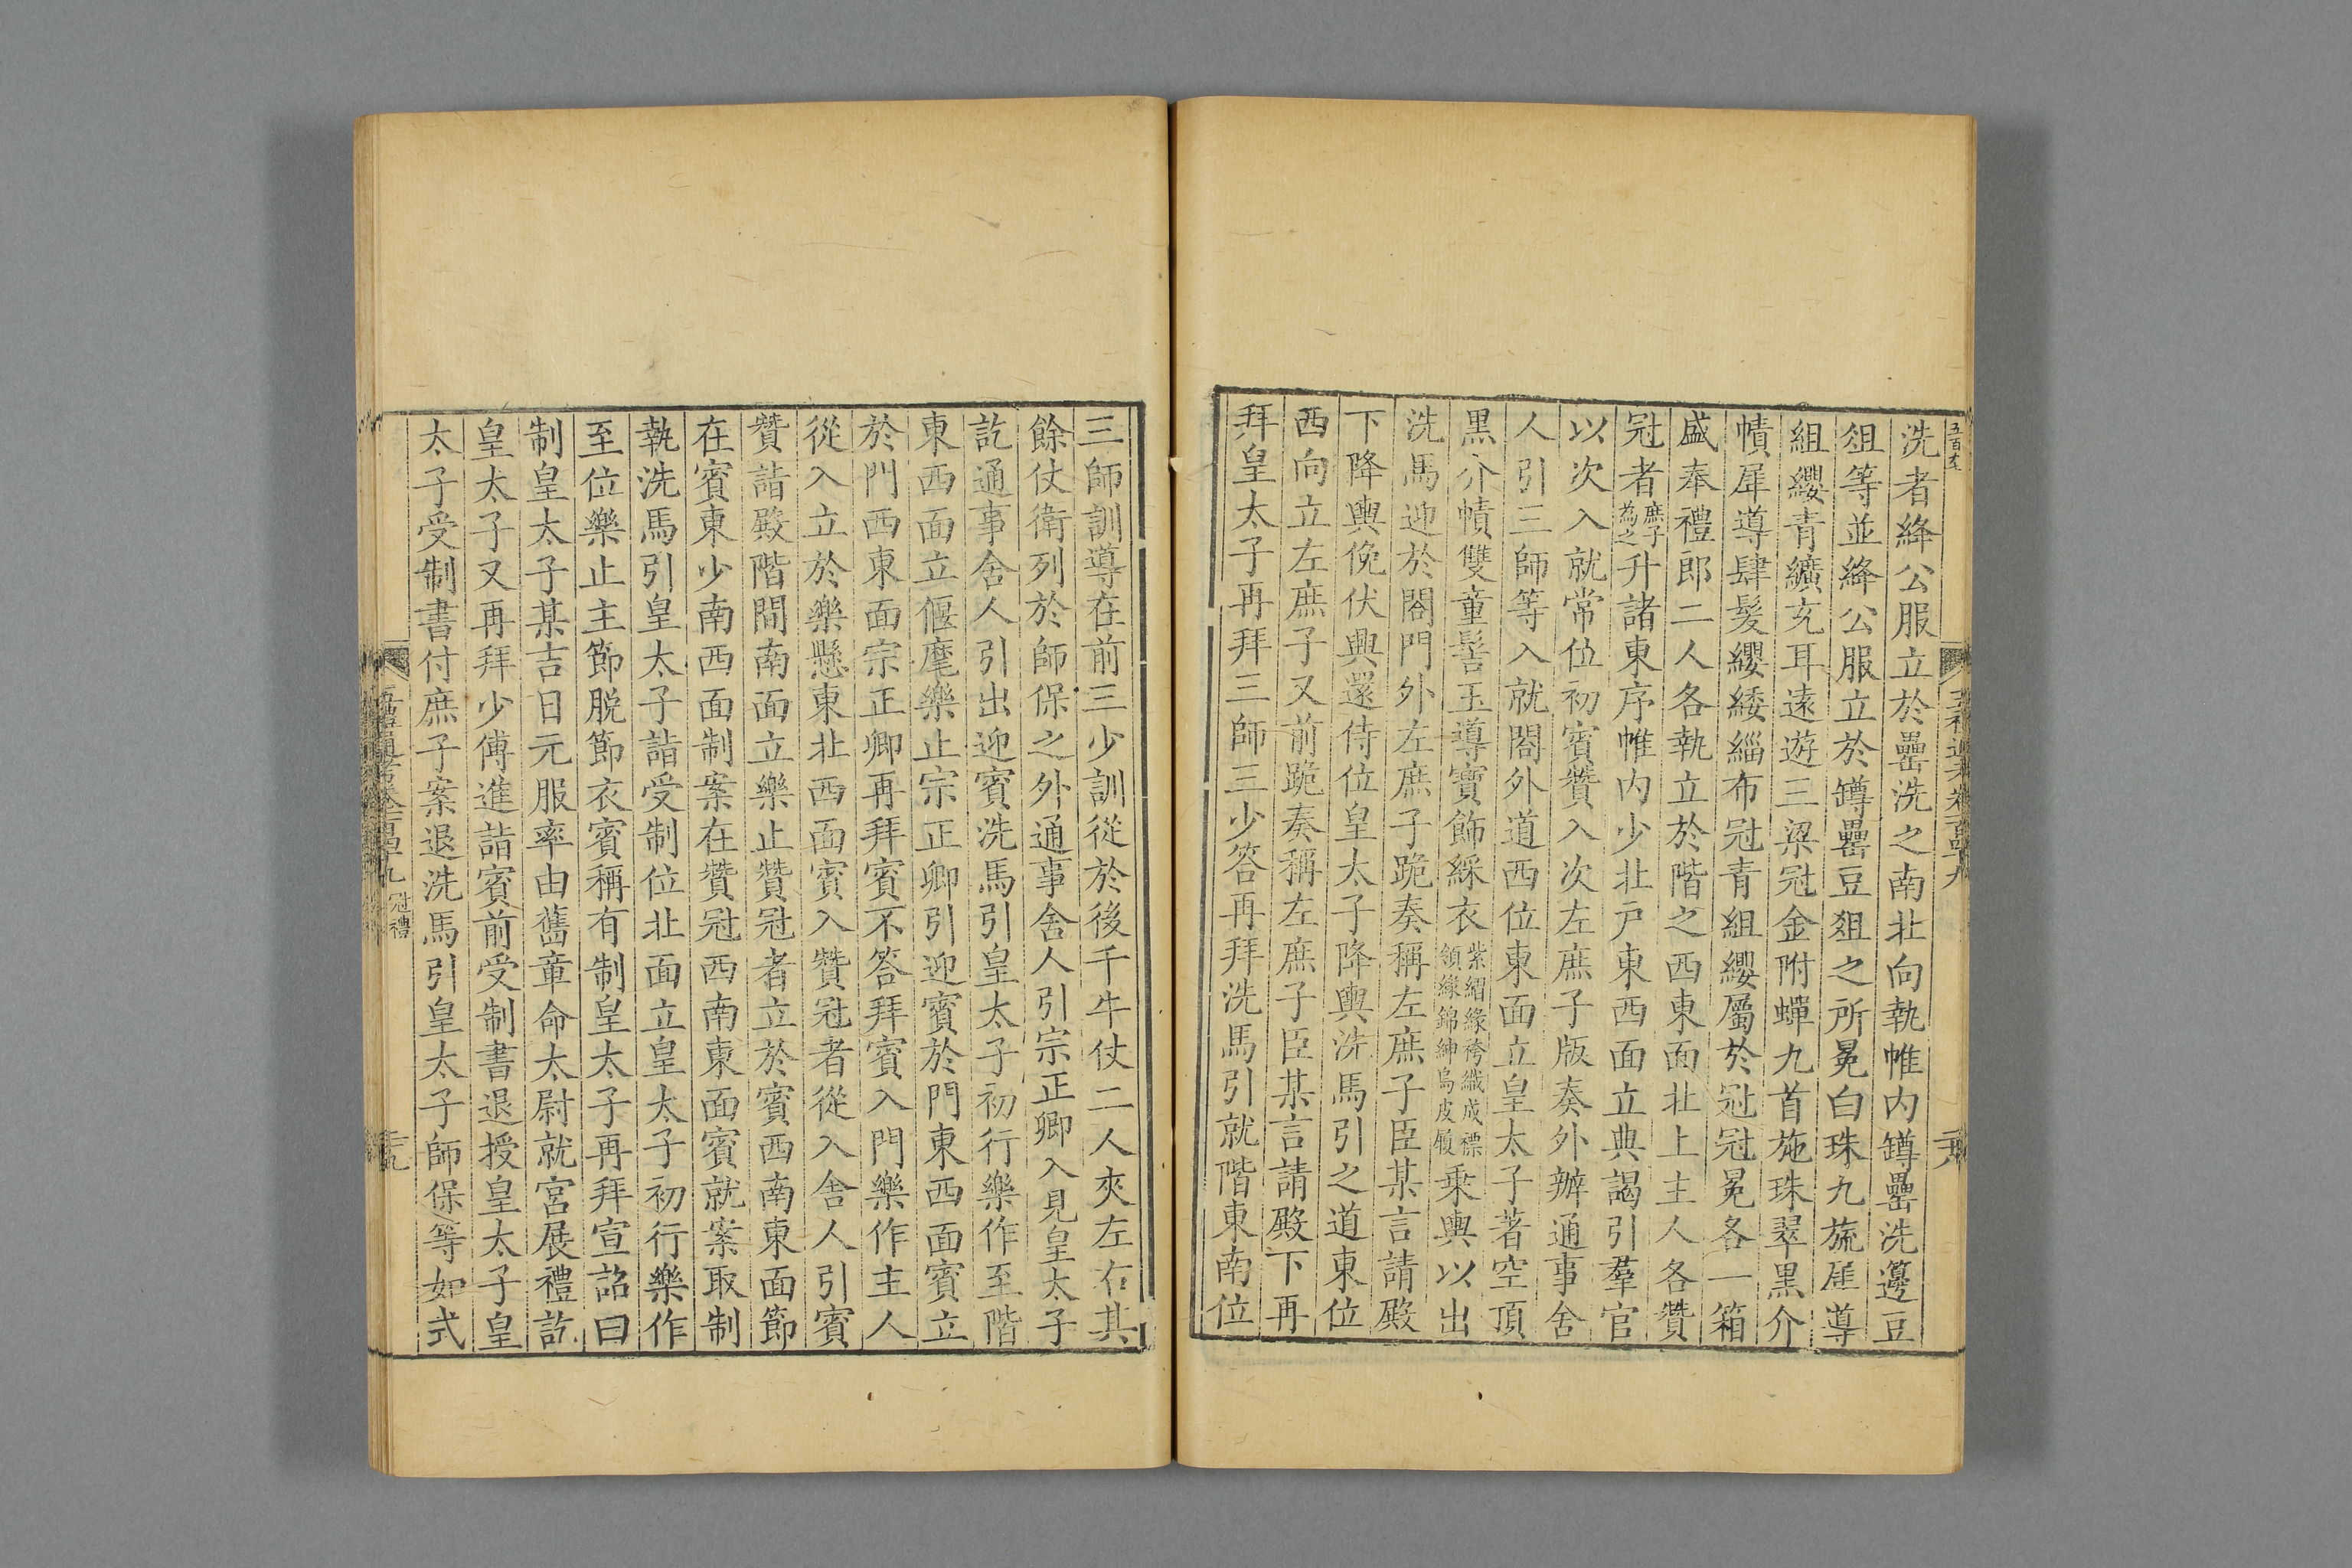 洗者絳公服立於罍洗之南北向執帷内罇罍洗籩豆
俎等並絳公服立於罇罍豆俎之所冕白珠九旒犀導
組纓青纊充耳遠遊三梁冠金附蟬九首施珠翠黑介
幘犀導肆髪纓緌緇布冠青組纓屬於冠冠冕各一箱
盛奉禮郎二人各執立於階之西東面北上主人各贊
冠者庶子為之升諸東序帷内少北戸東西面立典謁引羣官
以次入就常位初賓贊入次左庶子版奏外辦通事舍
人引三師等入就閤外道西位東面立皇太子著空頂
黒介幘雙童髻玉導寶飾綵衣紫緧緣袴織成褾領緣錦紳烏皮履乘輿以出
洗馬迎於閤門外左庶子跪奏稱左庶子臣某言請殿
下降輿俛伏興還侍位皇太子降輿洗馬引之道東位
西向立左庶子又前跪奏稱左庶子臣某言請殿下再
拜皇太子再拜三師三少答再拜洗馬引就階東南位
三師訓導在前三少訓從於後千牛仗二人夾左右其
餘仗衛列於師保之外通事舍人引宗正卿入見皇太子
訖通事舍人引出迎賓洗馬引皇太子初行樂作至階
東西面立偃麾樂止宗正卿引迎賓於門東西面賓立
於門西東面宗正卿再拜賓不答拜賓入門樂作主人
從入立於樂懸東北西面賓入贊冠者從入舍人引賓
贊詣殿階間南面立樂止贊冠者立於賓西南東面節
在賓東少南西面制案在贊冠西南東面賓就案取制
執洗馬引皇太子詣受制位北面立皇太子初行樂作
至位樂止主節脱節衣賓稱有制皇太子再拜宣詔曰
制皇太子某吉日元服率由舊章命太尉就宮展禮訖
皇太子又再拜少傅進詣賓前受制書退授皇太子皇
太子受制書付庶子案退洗馬引皇太子師保等如式
冠禮